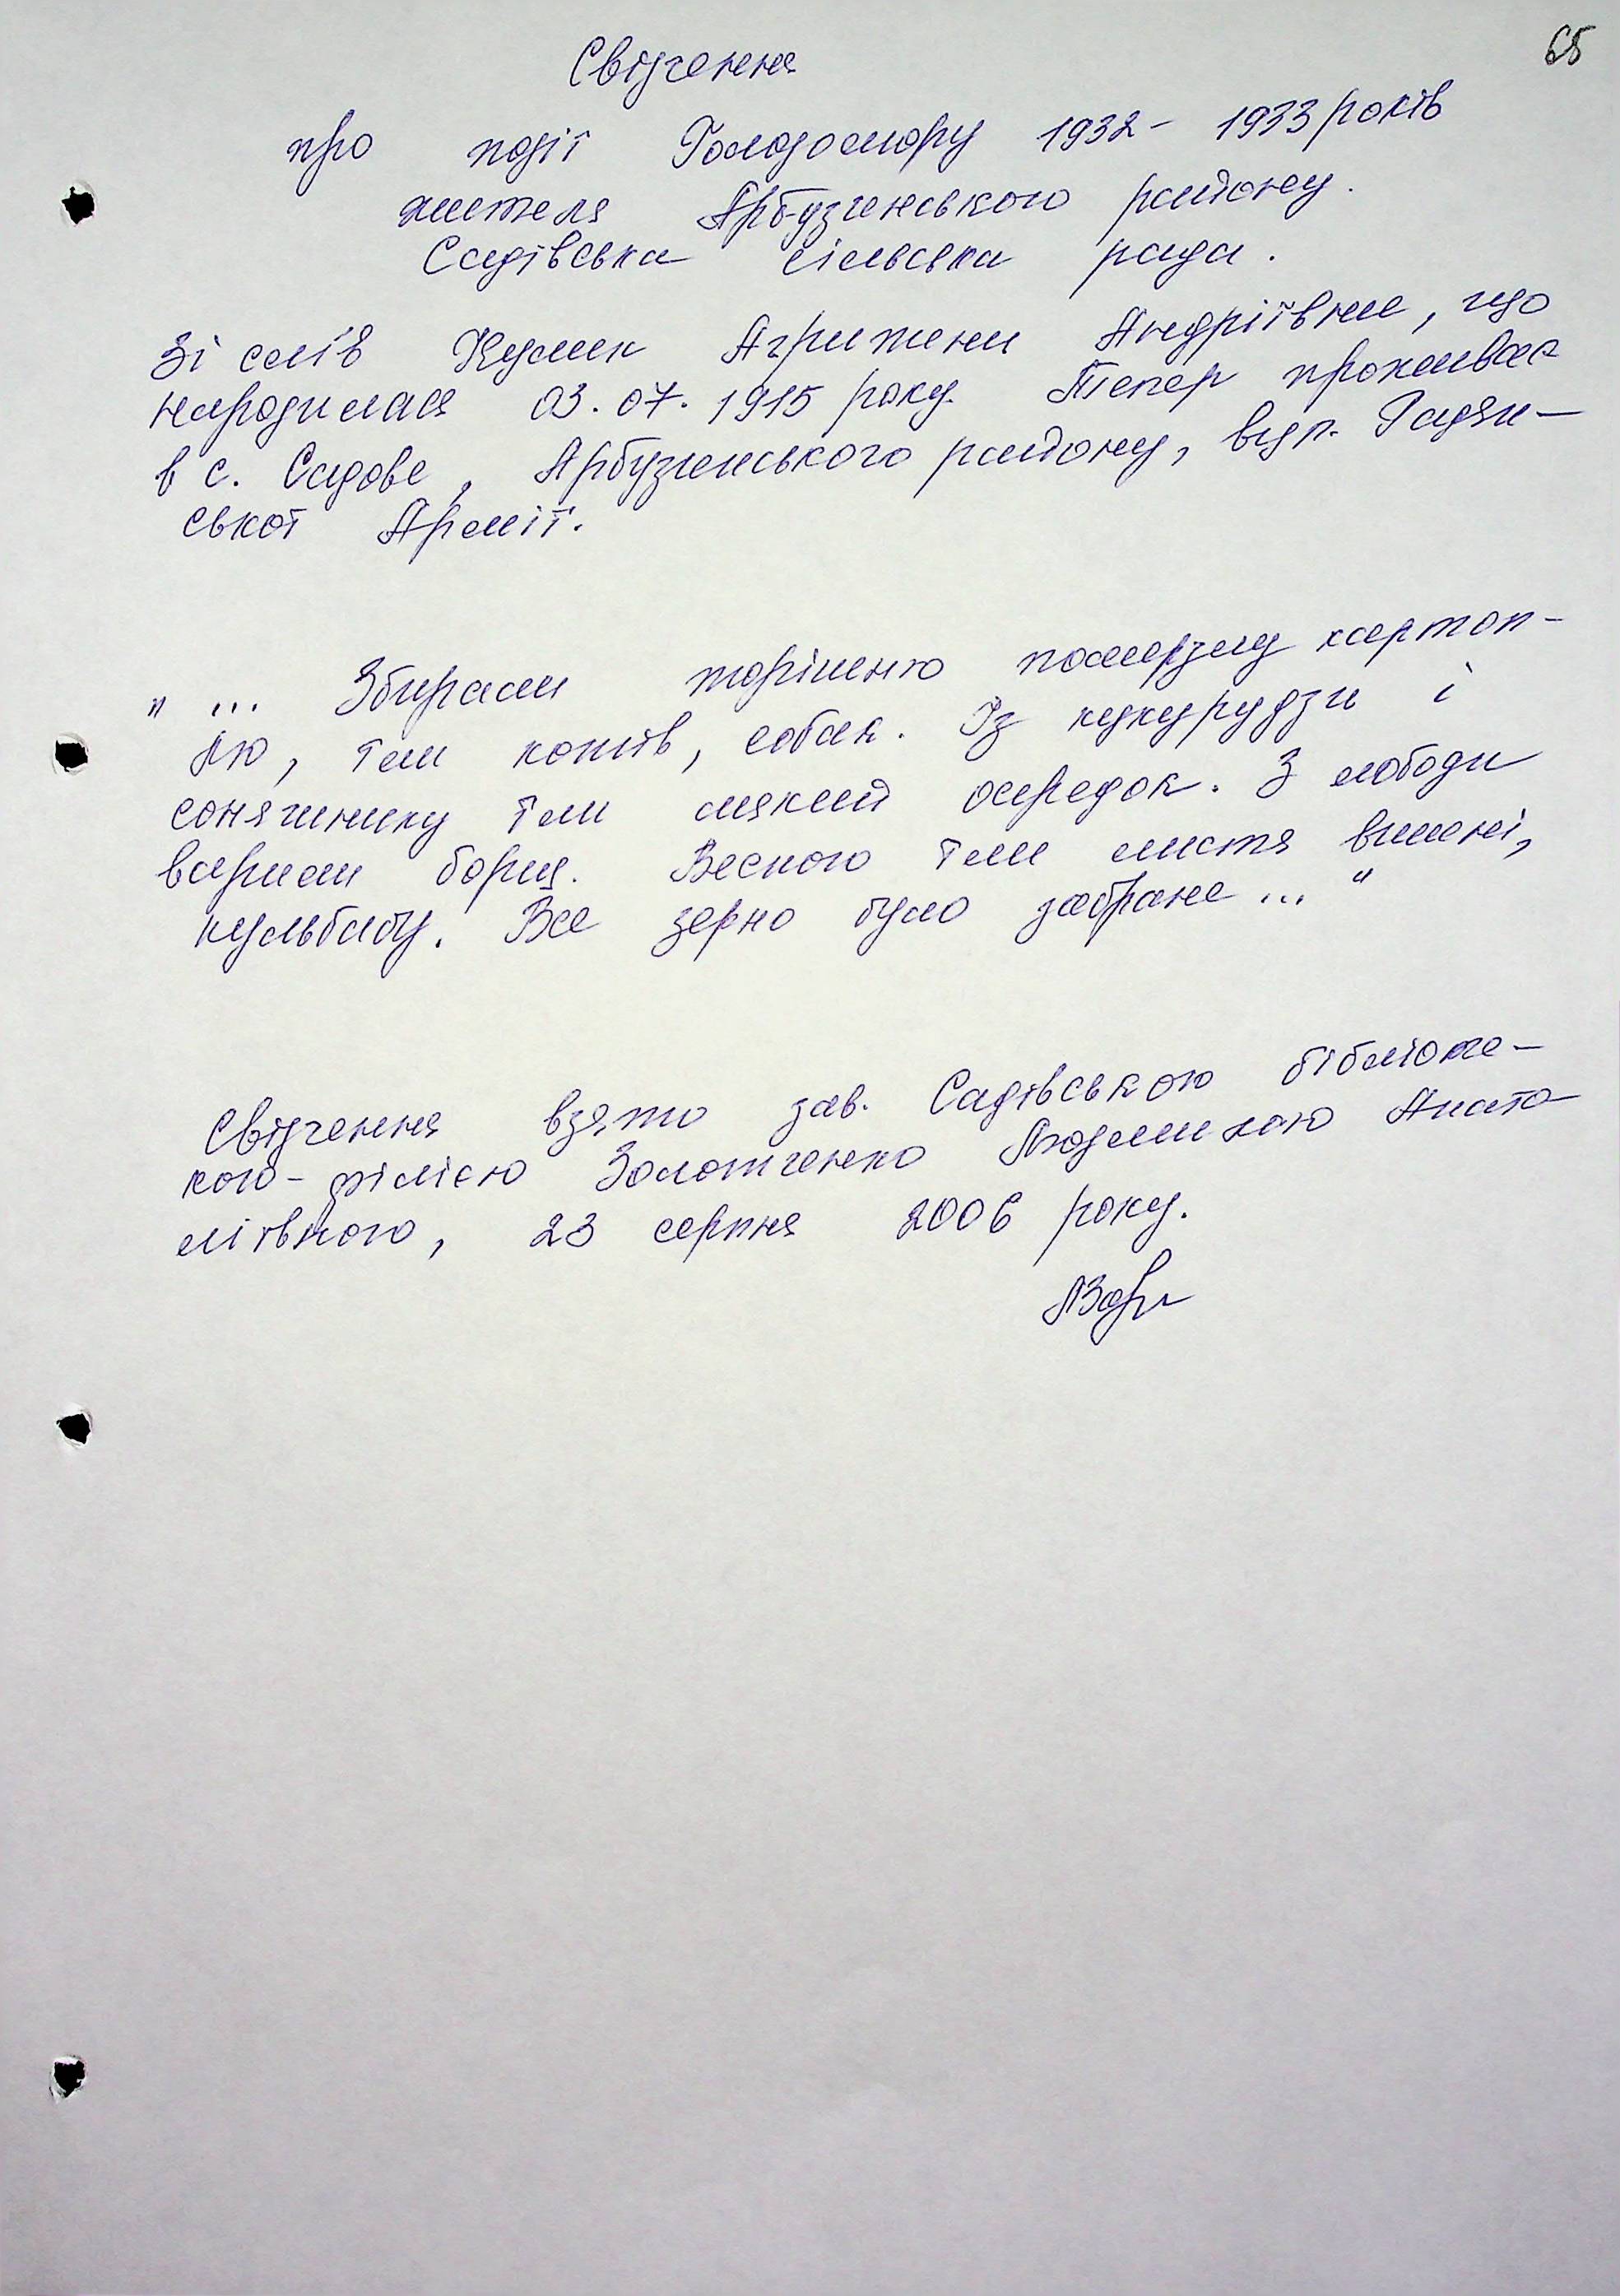 65
Свідчення
про події Голодомору 1932 - 1933 років
жителя Арбузинського району.
Садівська сільська рада.
Зі слів Кулик Агрипени Андріївни, що
народилася 03.07.1915 року. Тепер проживає
в с. Садове, Арбузинського району, вул. Радян-
ської Армії.
" ... Збирали торішню померзлу картоп-
лю, їли котів, собак. Із кукурудзи і
соняшнику їли мякий осередок. З лободи
варили борщ. Весною їли листя вишні,
кульбабу. Все зерно було забране ... "
Свідчення взято зав. Садівською бібліоте-
кою-філією Золотченко Людмилою Анато
ліївною, 23 серпня 2006 року.